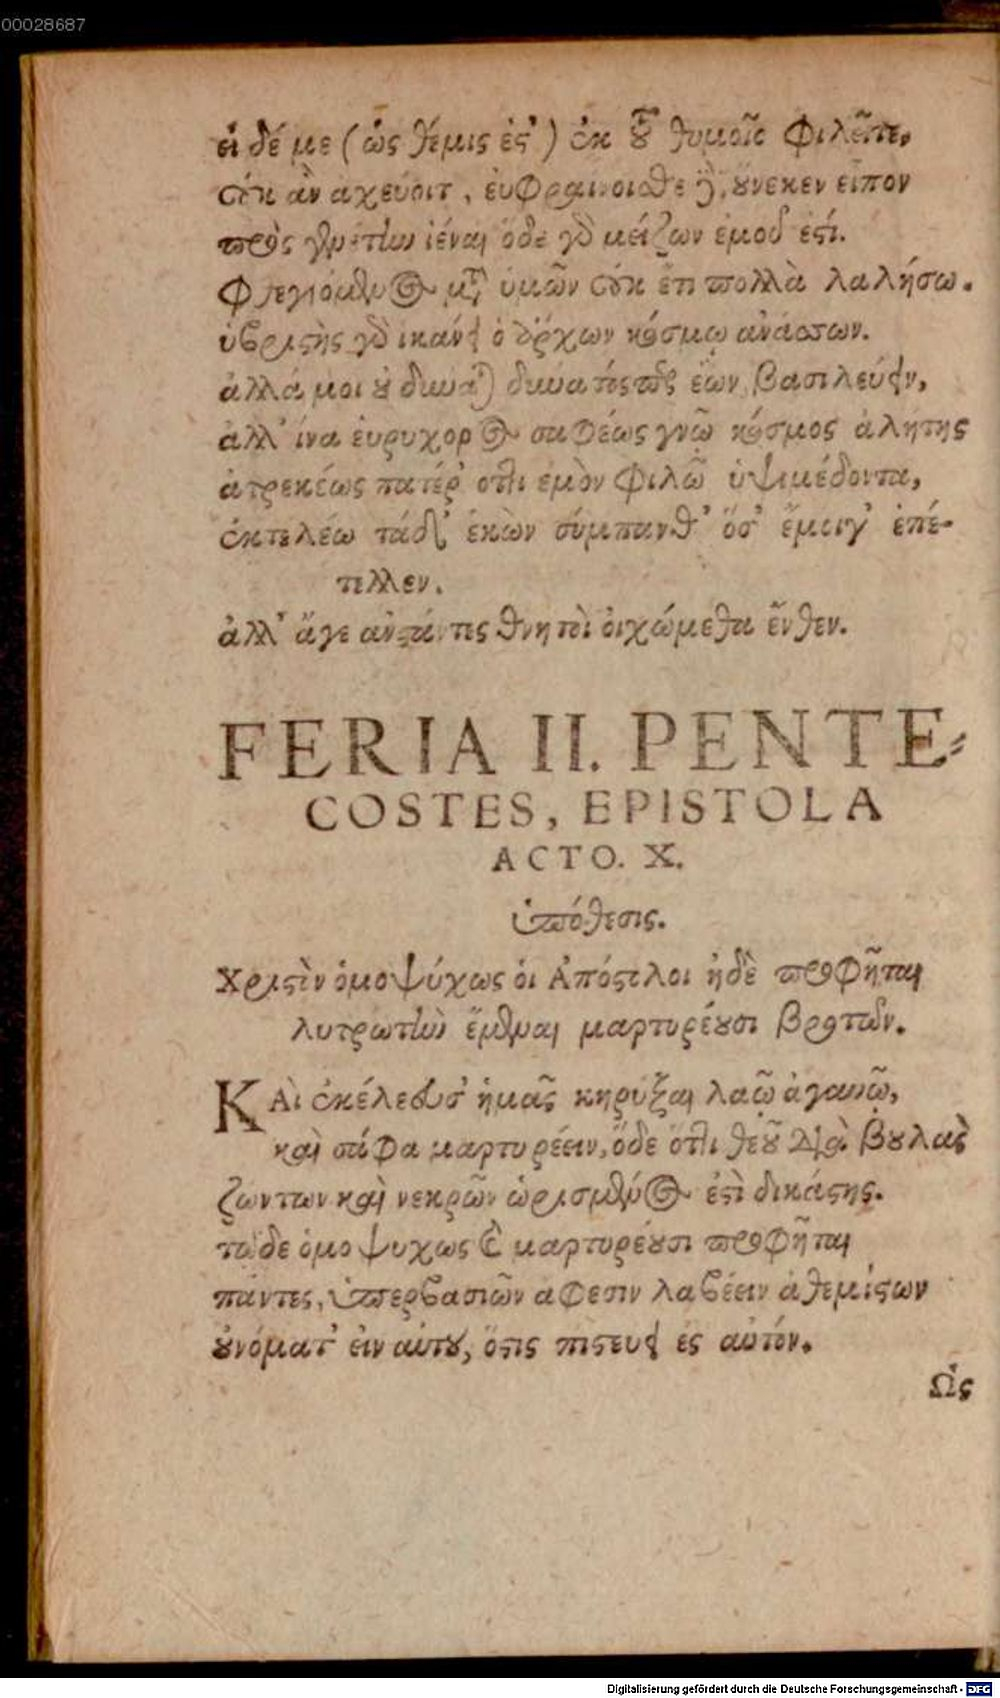 00028687
εἰ δέ με (ὡς θέμις ἐς') ἐκ τοῦ θυμοῖο φιλεῖτε,
οὐκ ἂν ἀχεύοιτ', εὐφραίνοισθε δ', οὕνεκεν εἶπον
πρὸς γενετὴν ἰέναι ὅδε γὸ μείζων ἐμοῦ ἐςί.
φθεγγόμενος μεθ' ὑμῶν οὐκ ἔτι πολλὰ λαλήσω.
ὑβριςὴς γὸ ἱκάνει ὁ ἄρχων κόσμῳ ἀνάσσων.
ἀλλά μοι οὐ δύναται βασιλεύειν,
ἀλλ' ἵνα εὐρυχορος σαφέως γνῷ κόσμος ἀλήτης
ἀτρεκέως πατέρ' ὅττι ἐμὸν φιλῶ ὑψιμέδοντα,
ἐκτελέω τάδ' ἑκὼν σύμπανθ' ὅσ' ἔμοιγ' ἐπέ-
τελλεν.
ἀλλ' ἄγε ἀνςάντες θνητοὶ οἰχώμεθα ἔνθεν.
FERIA II. PENTE-
COSTES, EPISTOLA
ACTO. X.
ὑπόθεσις.
Χριςὸν ὁμοψύχως οἱ Ἀπόςολοι ἠδὲ προφῆται
λυτρωτὴν ἔμμεναι μαρτυρέουσι βροτῶν.
ΚΑὶ ἐκέλευσ' ἡμᾶς κηρύξαι λαῷ ἀγανῷ,
καὶ σάφα μαρτυρέειν, ὅδε ὅττι θεοῦ διὰ βουλὰς
ζώντων καὶ νεκρῶν ὡρισμένος ἐςὶ δικάςης.
τῷδε ὁμοψυχως καὶ μαρτυρέουσι προφῆται
πάντες, ὑπερβασιῶν ἄφεσιν λαβέειν ἀθεμίςων
οὐνόματ' εἰν αὐτοῦ, ὅςις πιςεύει ἐς αὐτόν.
Ὡς
Digitalisierung gefördert durch die Deutsche Forschungsgemeinschaft - DFG